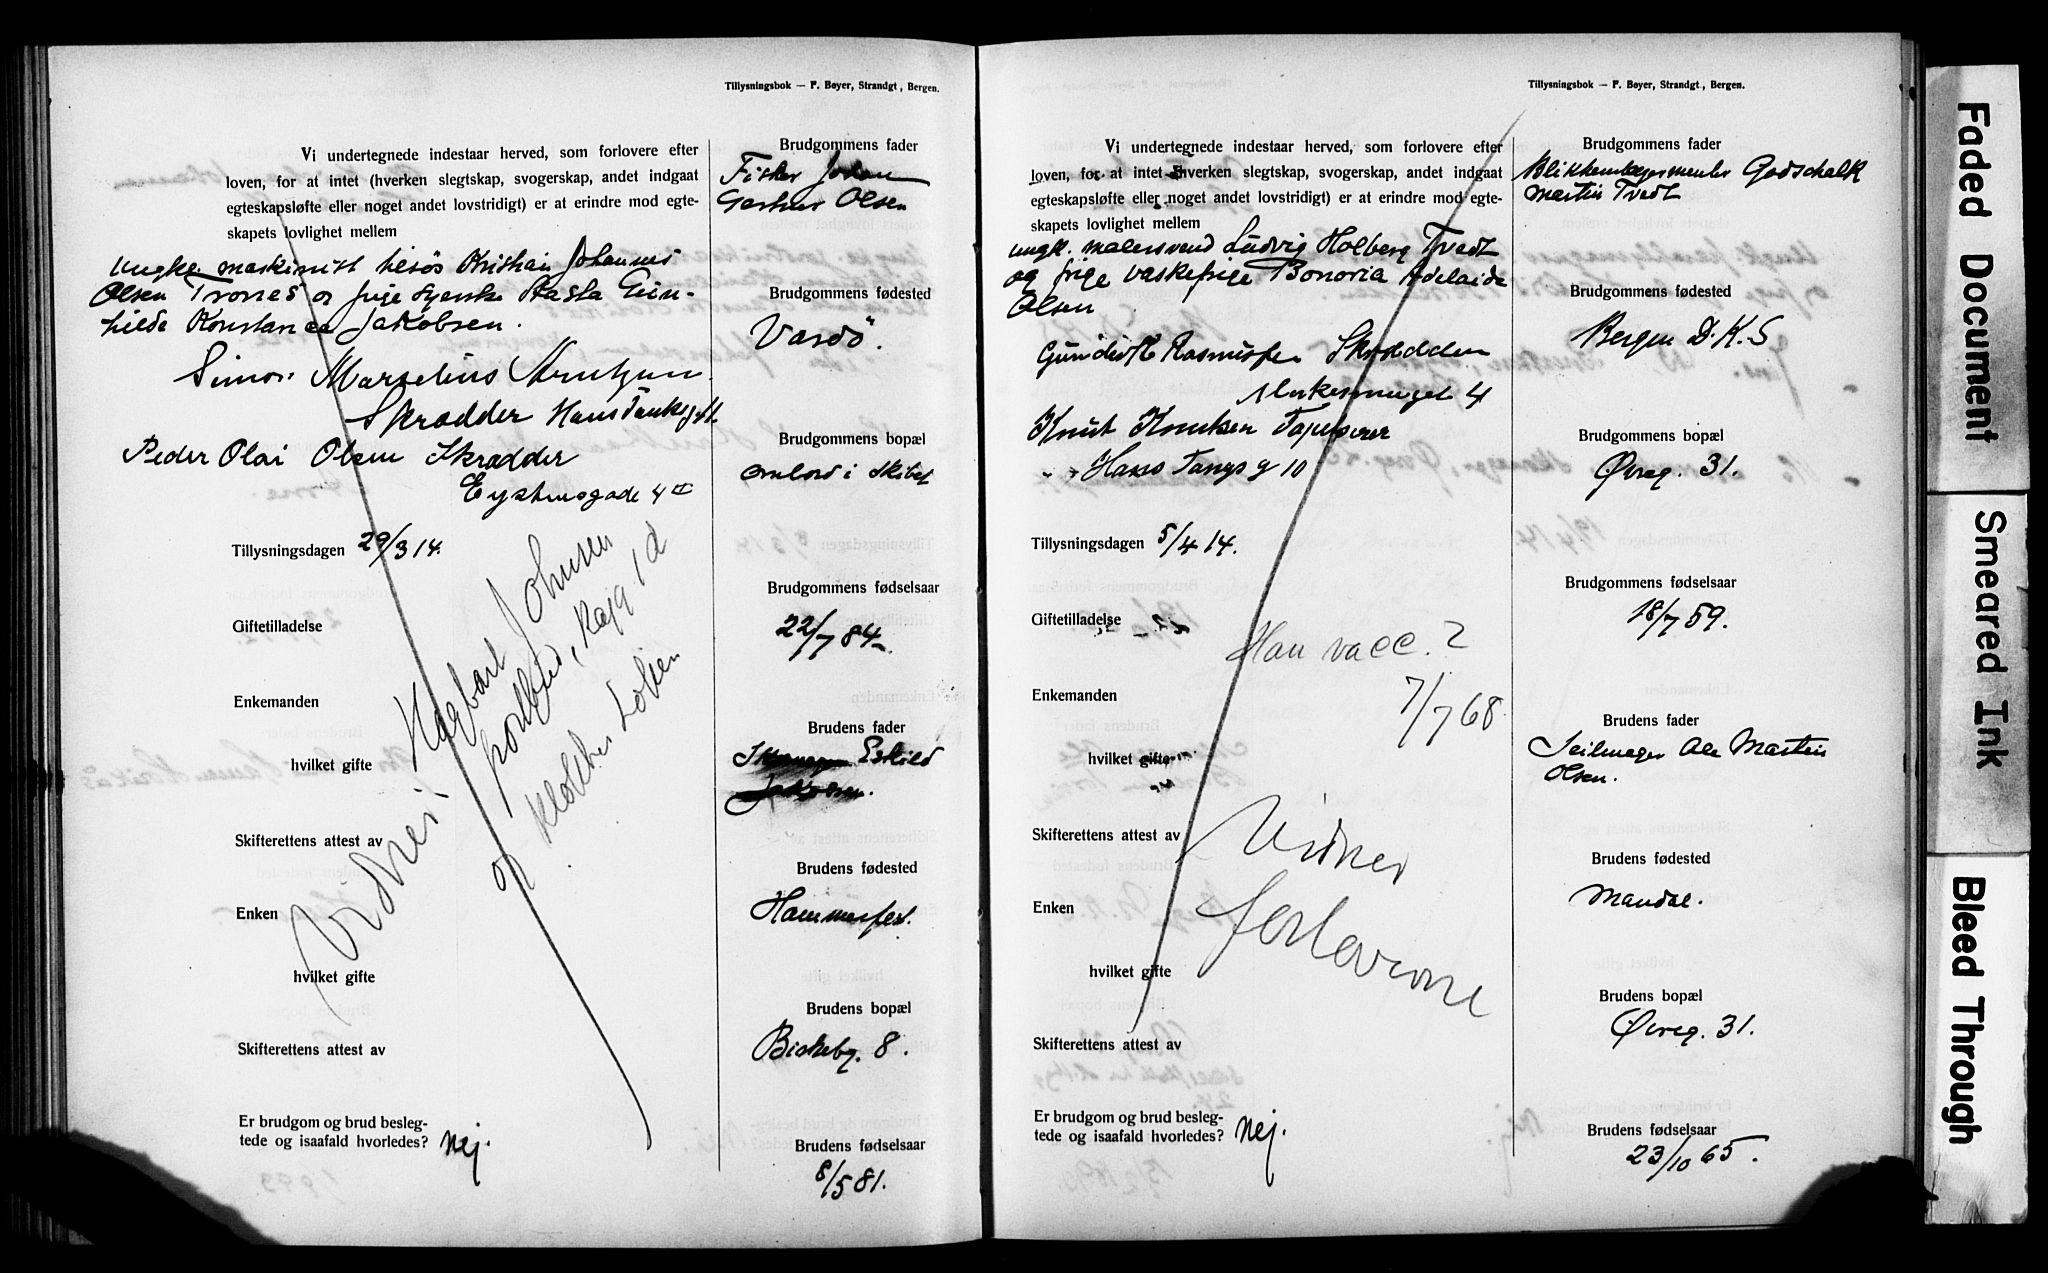 Tillysningsbok — F. Bøyer, Strandgt, Bergen.
Vi undertegnede indestaar herved, som forlovere efter
loven, for at intet (hverken slegtskap, svogerskap, andet indgaat
egteskapsløfte eller noget andet lovstridigt) er at erindre mod egte-
skapets lovlighet mellem
ungk. maskinist tilsös Kristian Johannes
Olsen Trones og pige syerske Aasta Gun-
hilda Konstanse Jakobsen.
Simon Marselius Arntzen
Skrædder Hans Tanksgt.
Peder Olai Olsen Skrædder
Eystensgade 4
Tillysningsdagen 29/3 14.
Giftetilladelse
Enkemanden
hvilket gifte
Skifterettens attest av
Enken
hvilket gifte
Skifterettens attest av
Er brudgom og brud besleg-
tede og isaafald hvorledes? Nej.
Vidner: Hagbart Johnsen
Kaja 1 d
og klokker
Brudgommens fader
Fisker Johan
Olsen
Brudgommens fødested
Vardö.
Brudgommens bopæl
ombord i Skibet
Brudgommens fødselsaar
22/7 84
Brudens fader
Eskild
Jakobsen.
Brudens fødested
Hammerfest.
Brudens bopæl
Birkebg. 8.
Brudens fødselsaar
8/5 81.
Tillysningsbok — F. Bøyer, Strandgt, Bergen.
Vi undertegnede indestaar herved, som forlovere efter
loven, for at intet (hverken slegtskap, svogerskap, andet indgaat
egteskapsløfte eller noget andet lovstridigt) er at erindre mod egte-
skapets lovlighet mellem
ungk. malersvend Ludvig Holberg Tvedt
og pige vaskepige Bonoria Adelaide
Olsen
Rasmussen Skrædder
4
Knut Knutsen Tapetserer
Hans Tangs g 10
Tillysningsdagen 5/4 14.
Giftetilladelse
Han vacc. ?
Enkemanden
7/7 68
hvilket gifte
Skifterettens attest av
Vidner
Enken
forloverne
hvilket gifte
Skifterettens attest av
Er brudgom og brud besleg-
tede og isaafald hvorledes? Nej.
Brudgommens fader
Blikkenslagermester Godschalk
Martin Tvedt
Brudgommens fødested
Bergen D.K.S
Brudgommens bopæl
Øvreg. 31.
Brudgommens fødselsaar
18/7 59.
Brudens fader
Seilmager Ole Martin
Olsen.
Brudens fødested
Mandal.
Brudens bopæl
Øvreg. 31.
Brudens fødselsaar
23/10 65.
Faded Document
Smeared Ink
Bleed Through